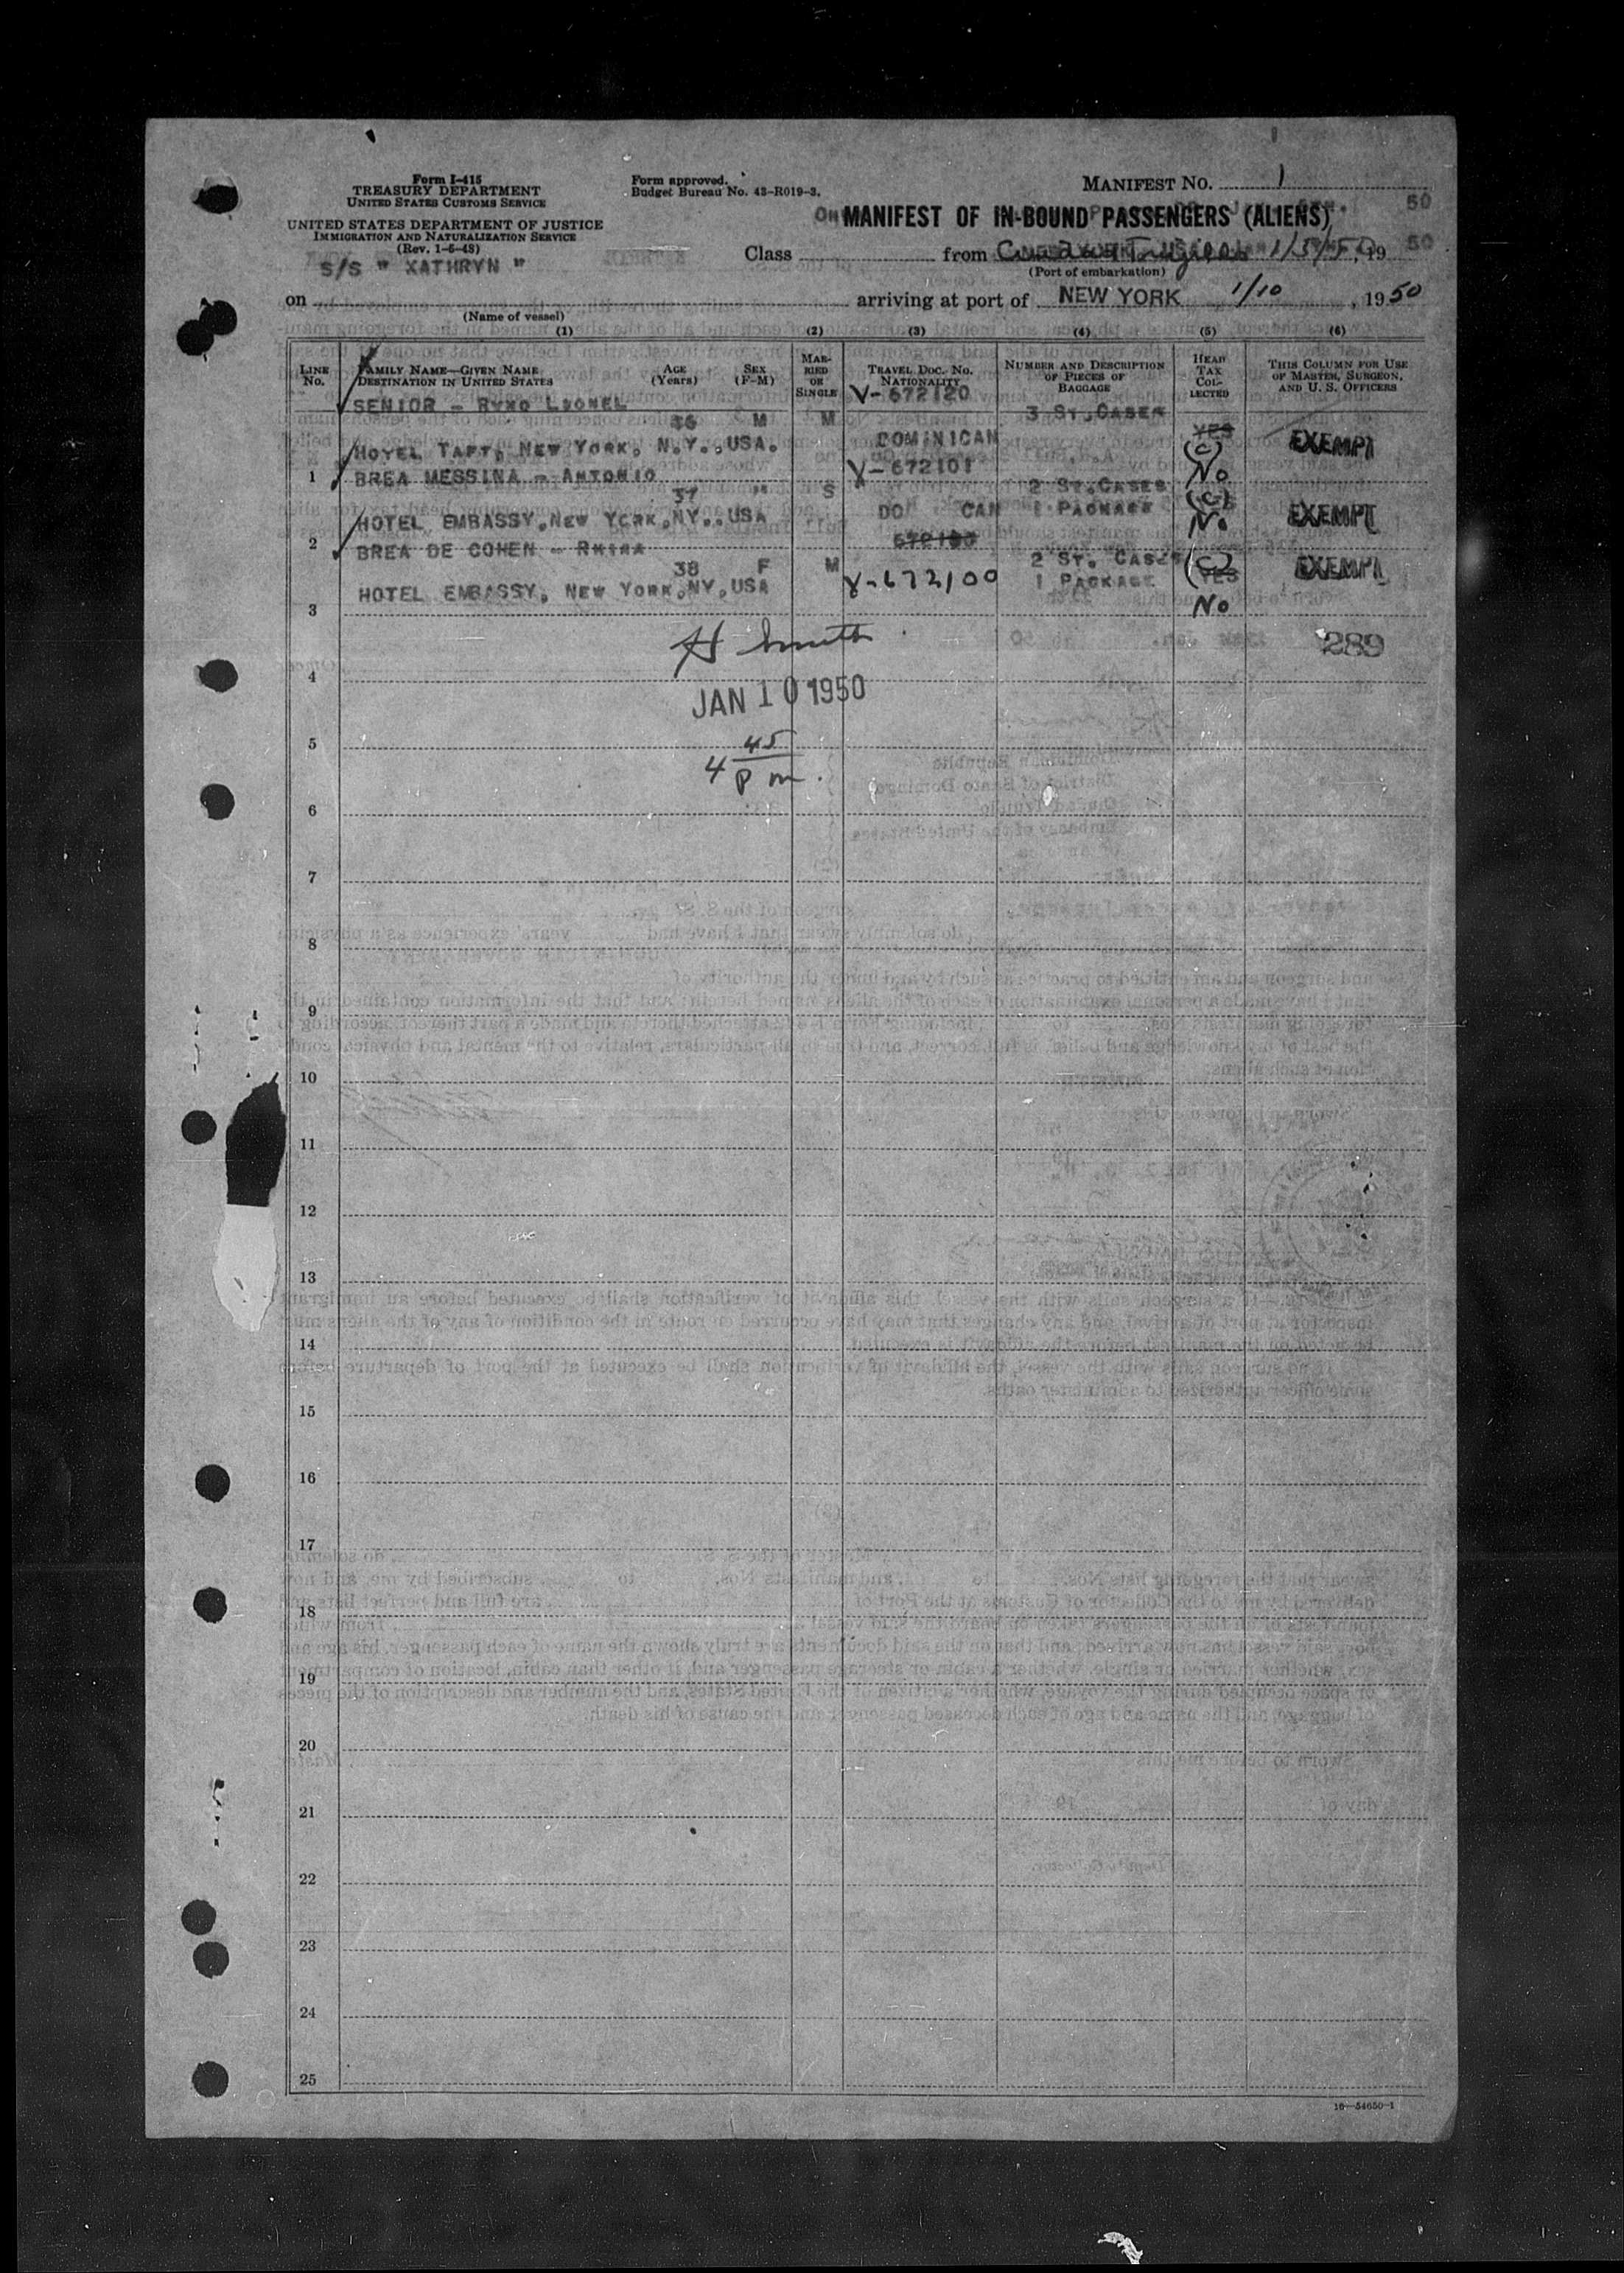 Form I-415
TREASURY DEPARTMENT
UNITED STATES CUSTOMS SERVICE
UNITED STATES DEPARTMENT OF JUSTICE
IMMIGRATION AND NATURALIZATION SERVICE
(Rev. 1-6-48)
Form approved.
Budget Bureau No. 43-R019-3.
MANIFEST NO. 1
MANIFEST OF IN-BOUND PASSENGERS (ALIENS)
50
S/S " KATHRYN "
Class from 1/5/50, 19 50
(Port of embarkation)
on arriving at port of NEW YORK 1/10, 1950
(Name of vessel)
(1) (2) (3) (4) (5) (6)
LINE NO.
FAMILY NAME—GIVEN NAME
DESTINATION IN UNITED STATES
AGE (Years)
SEX (F-M)
MARRIED OR SINGLE
TRAVEL DOC. NO.
NATIONALITY
NUMBER AND DESCRIPTION OF PIECES OF BAGGAGE
HEAD TAX COLLECTED
THIS COLUMN FOR USE OF MASTER, SURGEON, AND U. S. OFFICERS
SENIOR - LEONEL V-672120
M M 3 ST.CASES
HOTEL TAFT, NEW YORK, N.Y.,USA. DOMINICAN YES (C) No EXEMPT
1 BREA MESSINA - ANTONIO V-672101
37 " S 2 ST.CASES
HOTEL EMBASSY,NEW YORK,NY.,USA DO CAN 1 PACKAGE (C) No EXEMPT
2 BREA DE COHEN - 672100
38 F M 2 ST. CASES (C) YES
HOTEL EMBASSY, NEW YORK,NY,USA V-672100 1 PACKAGE No EXEMPT
3
H Smith
289
4
JAN 10 1950
5
4 45
p m.
6
7
8
9
10
11
12
13
14
15
16
17
18
19
20
21
22
23
24
25
16—54650-1